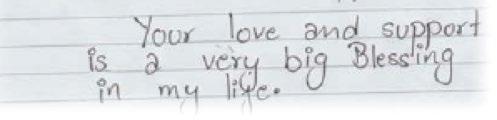 Your love and support
is a very big Blessing
in my life.